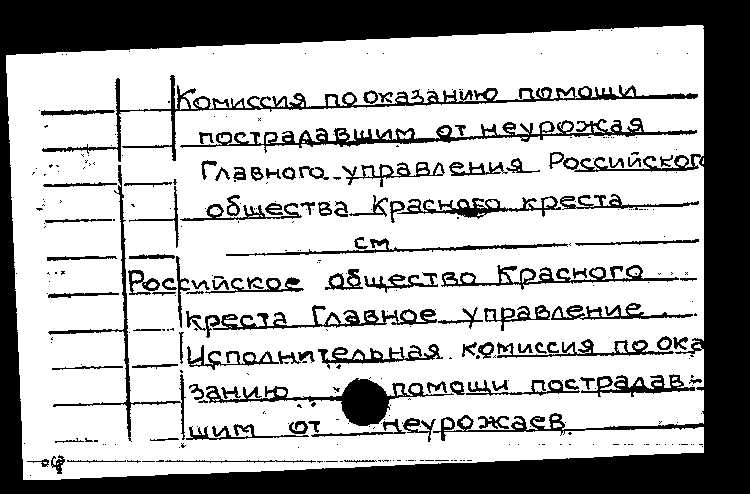 Комиссия по оказанию помощи
пострадавшим от неурожая
Главного управления Российского
общества Красного креста
см.
Российское общество Красного
креста Главное управление.
Исполнительная комиссия по ока
занию помощи пострадав-
шим от неурожаев.